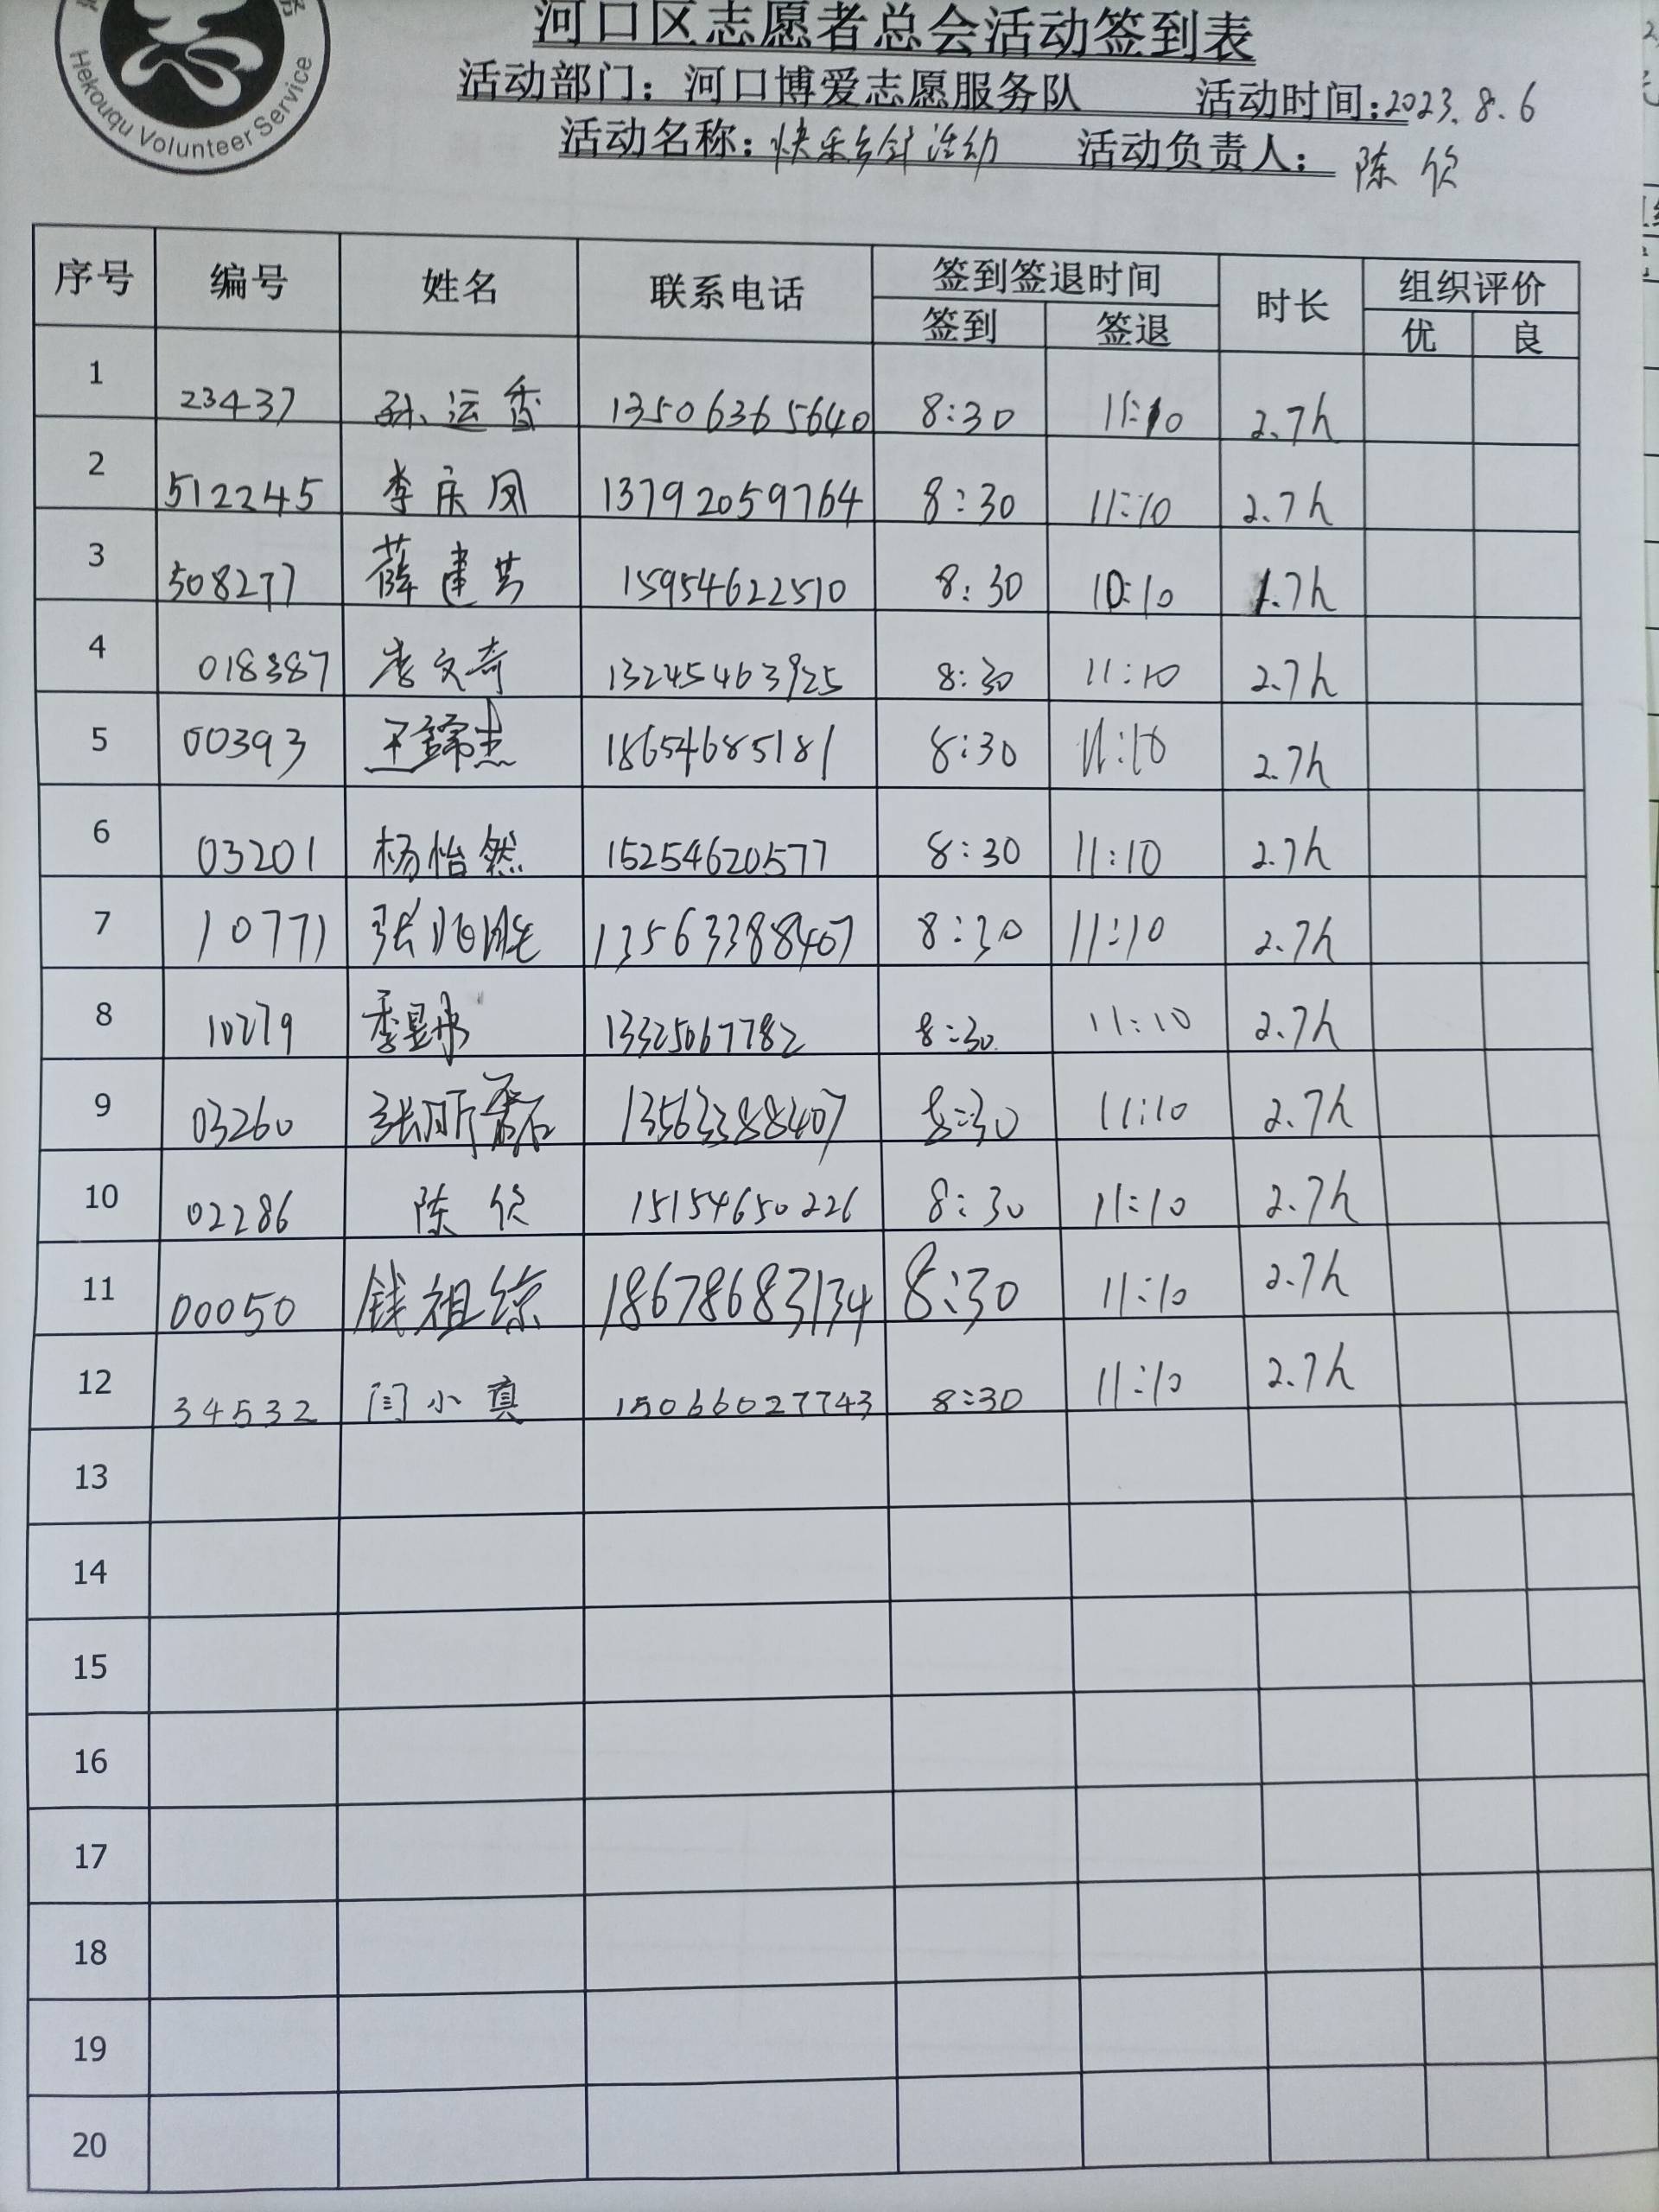 Hekouqu Volunteer Service
河口区志愿者总会活动签到表
活动部门：河口博爱志愿服务队 活动时间：2023.8.6
活动名称：快乐乡邻活动 活动负责人：陈欣
序号 编号 姓名 联系电话 签到签退时间 时长 组织评价
签到 签退 优 良
1 23437 孙运香 13506365640 8:30 11:10 2.7h
2 512245 李庆凤 13792059764 8:30 11:10 2.7h
3 508277 薛建芸 15954622510 8:30 10:10 1.7h
4 018387 李文奇 13245463925 8:30 11:10 2.7h
5 00393 王 杰 18654685181 8:30 11:10 2.7h
6 03201 杨怡然 15254620577 8:30 11:10 2.7h
7 10771 张兆胜 13563388407 8:30 11:10 2.7h
8 10279 季昱 13325067782 8:30 11:10 2.7h
9 03260 张昕 13563388407 8:30 11:10 2.7h
10 02286 陈欣 15154650226 8:30 11:10 2.7h
11 00050 钱祖综 18678683134 8:30 11:10 2.7h
12 34532 闫小真 15066027743 8:30 11:10 2.7h
13
14
15
16
17
18
19
20